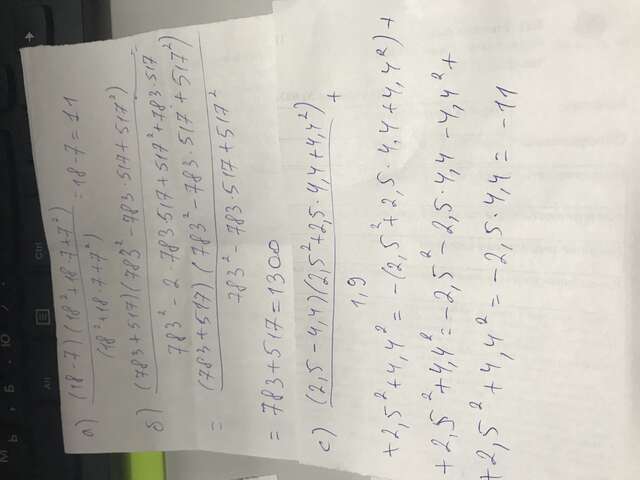 Alt
Ctrl
а) (18-7)(18²+18·7+7²) / (18²+18·7+7²) = 18-7 = 11
б) (783+517)(783²-783·517+517²) / 783²-2·783·517+517²+783·517
= (783+517)(783²-783·517+517²) / 783²-783·517+517²
= 783+517=1300
с) (2,5-4,4)(2,5²+2,5·4,4+4,4²) / 1,9 +
+2,5²+4,4² = -(2,5²+2,5·4,4+4,4²)+
+2,5²+4,4²=-2,5²-2,5·4,4-4,4²+
+2,5²+4,4²=-2,5·4,4= -11